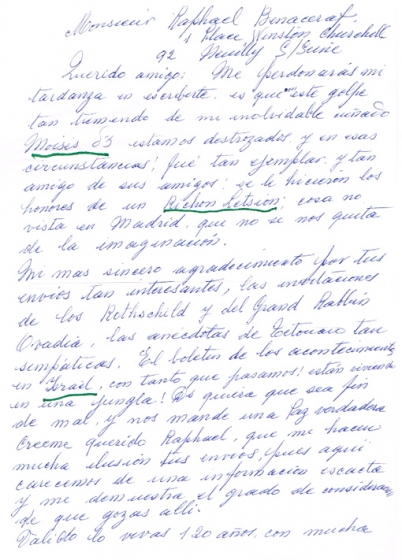 Monsieur Raphael Benaceraf.
1 Place Winston Churchill
92 Neuilly S/Seine
Querido amigo: Me perdonarás mi
tardanza en escribirte. es que este golpe
tan tremendo de mi inolvidable cuñado
Moises estamos destrozados, y en esas
circunstancias! fué tan ejemplar y tan
amigo de sus amigos; se le hicieron los
honores de un Richon Letsion; cosa no
vista en Madrid, que no se nos quita
de la imaginacion.
Mi mas sincero agradecimiento por tus
envios tan interesantes, las invitaciones
de los Rothschild y del Grand Rabbin
Ovadia, las anecdotas de Tetouan tan
simpáticas. El boletin de los acontecimientos
en Israel, con tanto que pasamos! están viviendo
en una jungla! Ds quiera que sea fin
de mal, y nos mande una Paz verdadera
Creeme querido Raphael, que me hacen
mucha ilusion tus envios, pues aqui
carecemos de una informacion escacta
y me demuestra el grado de consideracion
de que gozas alli.
lo vivas 120 años, con mucha